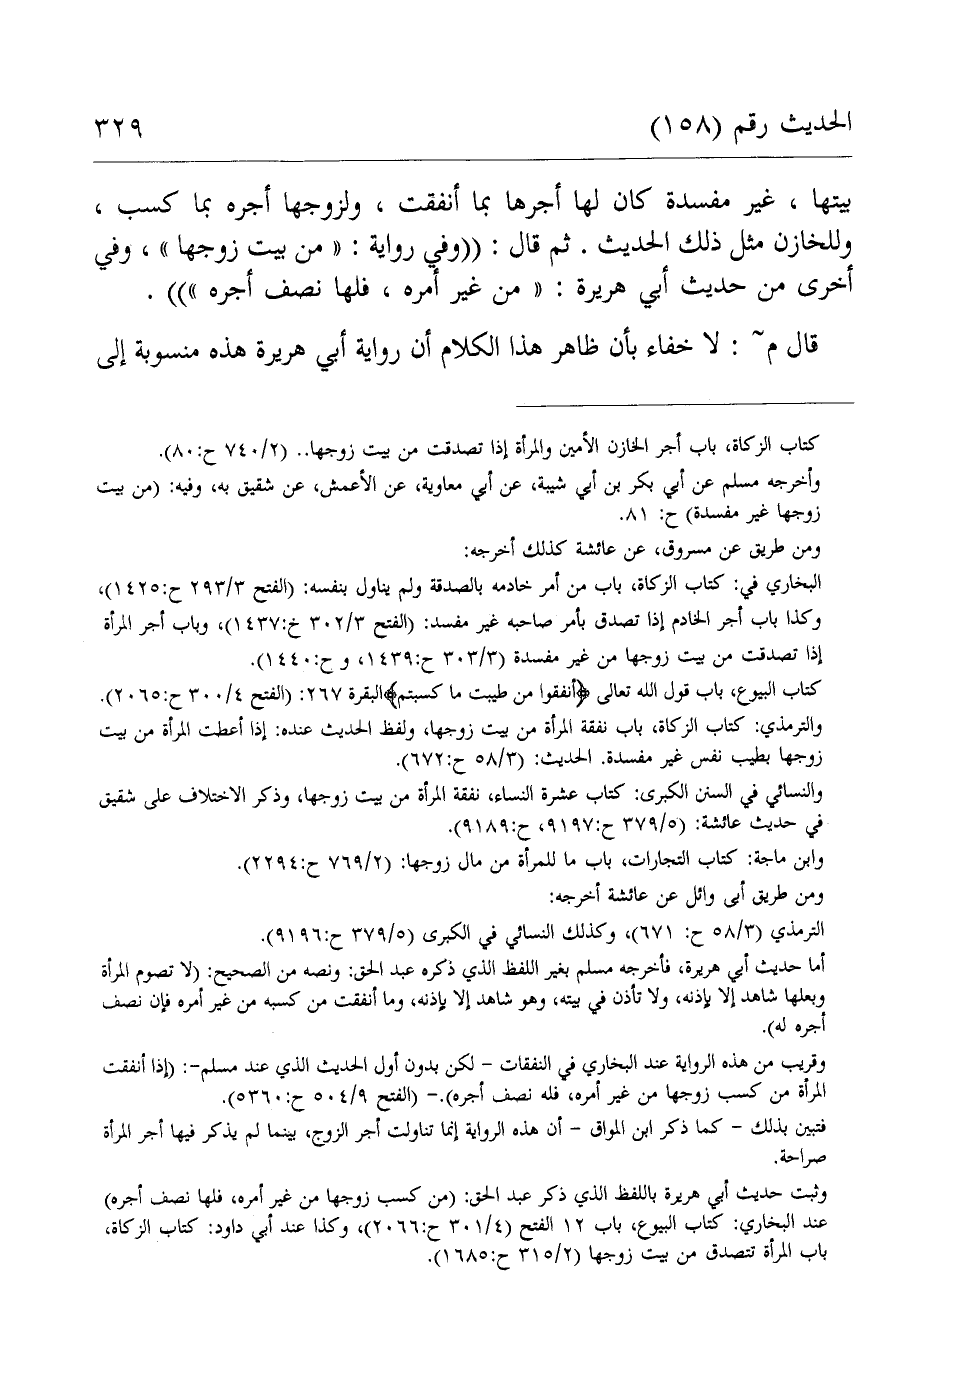 الحديث رقم (١٥٨)
٣٢٩
بيتها ، غير مفسدة كان لها أجرها بما أنفقت ، ولزوجها أجره بما كسب ،
وللخازن مثل ذلك الحديث . ثم قال : ((وفي رواية : « من بيت زوجها » ، وفي
أخرى من حديث أبي هريرة : « من غير أمره ، فلها نصف أجره »)) .
قال م~ : لا خفاء بأن ظاهر هذا الكلام أن رواية أبي هريرة هذه منسوبة إلى
كتاب الزكاة، باب أجر الخازن الأمين والمرأة إذا تصدقت من بيت زوجها.. (٧٤٠/٢ ح:٨٠).
وأخرجه مسلم عن أبي بكر بن أبي شيبة، عن أبي معاوية، عن الأعمش، عن شقيق به، وفيه: (من بيت
زوجها غير مفسدة) ح: ٨١.
ومن طريق عن مسروق، عن عائشة كذلك أخرجه:
البخاري في: كتاب الزكاة، باب من أمر خادمه بالصدقة ولم يناول بنفسه: (الفتح ٢٩٣/٣ ح:١٤٢٥)،
وكذا باب أجر الخادم إذا تصدق بأمر صاحبه غير مفسد: (الفتح ٣٠٢/٣ خ:١٤٣٧)، وباب أجر المرأة
إذا تصدقت من بيت زوجها من غير مفسدة (٣٠٣/٣ ح:١٤٣٩، و ح:١٤٤٠).
كتاب البيوع، باب قول الله تعالى ﴿أنفقوا من طيبت ما كسبتم﴾البقرة ٢٦٧: (الفتح ٣٠٠/٤ ح:٢٠٦٥).
والترمذي: كتاب الزكاة، باب نفقة المرأة من بيت زوجها، ولفظ الحديث عنده: إذا أعطت المرأة من بيت
زوجها بطيب نفس غير مفسدة. الحديث: (٥٨/٣ ح:٦٧٢).
والنسائي في السنن الكبرى: كتاب عشرة النساء، نفقة المرأة من بيت زوجها، وذكر الاختلاف على شقيق
في حديث عائشة: (٣٧٩/٥ ح:٩١٩٧، ح:٩١٨٩).
وابن ماجة: كتاب التجارات، باب ما للمرأة من مال زوجها: (٧٦٩/٢ ح:٢٢٩٤).
ومن طريق أبى وائل عن عائشة أخرجه:
الترمذي (٥٨/٣ ح: ٦٧١)، وكذلك النسائي في الكبرى (٣٧٩/٥ ح:٩١٩٦).
أما حديث أبي هريرة، فأخرجه مسلم بغير اللفظ الذي ذكره عبد الحق: ونصه من الصحيح: (لا تصوم المرأة
وبعلها شاهد إلا بإذنه، ولا تأذن في بيته، وهو شاهد إلا بإذنه، وما أنفقت من كسبه من غير أمره فإن نصف
أجره له).
وقريب من هذه الرواية عند البخاري في النفقات - لكن بدون أول الحديث الذي عند مسلم-: (إذا أنفقت
المرأة من كسب زوجها من غير أمره، فله نصف أجره).- (الفتح ٥٠٤/٩ ح:٥٣٦٠).
فتبين بذلك - كما ذكر ابن المواق - أن هذه الرواية إنما تناولت أجر الزوج، بينما لم يذكر فيها أجر المرأة
صراحة.
وثبت حديث أبي هريرة باللفظ الذي ذكر عبد الحق: (من كسب زوجها من غير أمره، فلها نصف أجره)
عند البخاري: كتاب البيوع، باب ١٢ الفتح (٣٠١/٤ ح:٢٠٦٦)، وكذا عند أبي داود: كتاب الزكاة،
باب المرأة تتصدق من بيت زوجها (٣١٥/٢ ح:١٦٨٥).